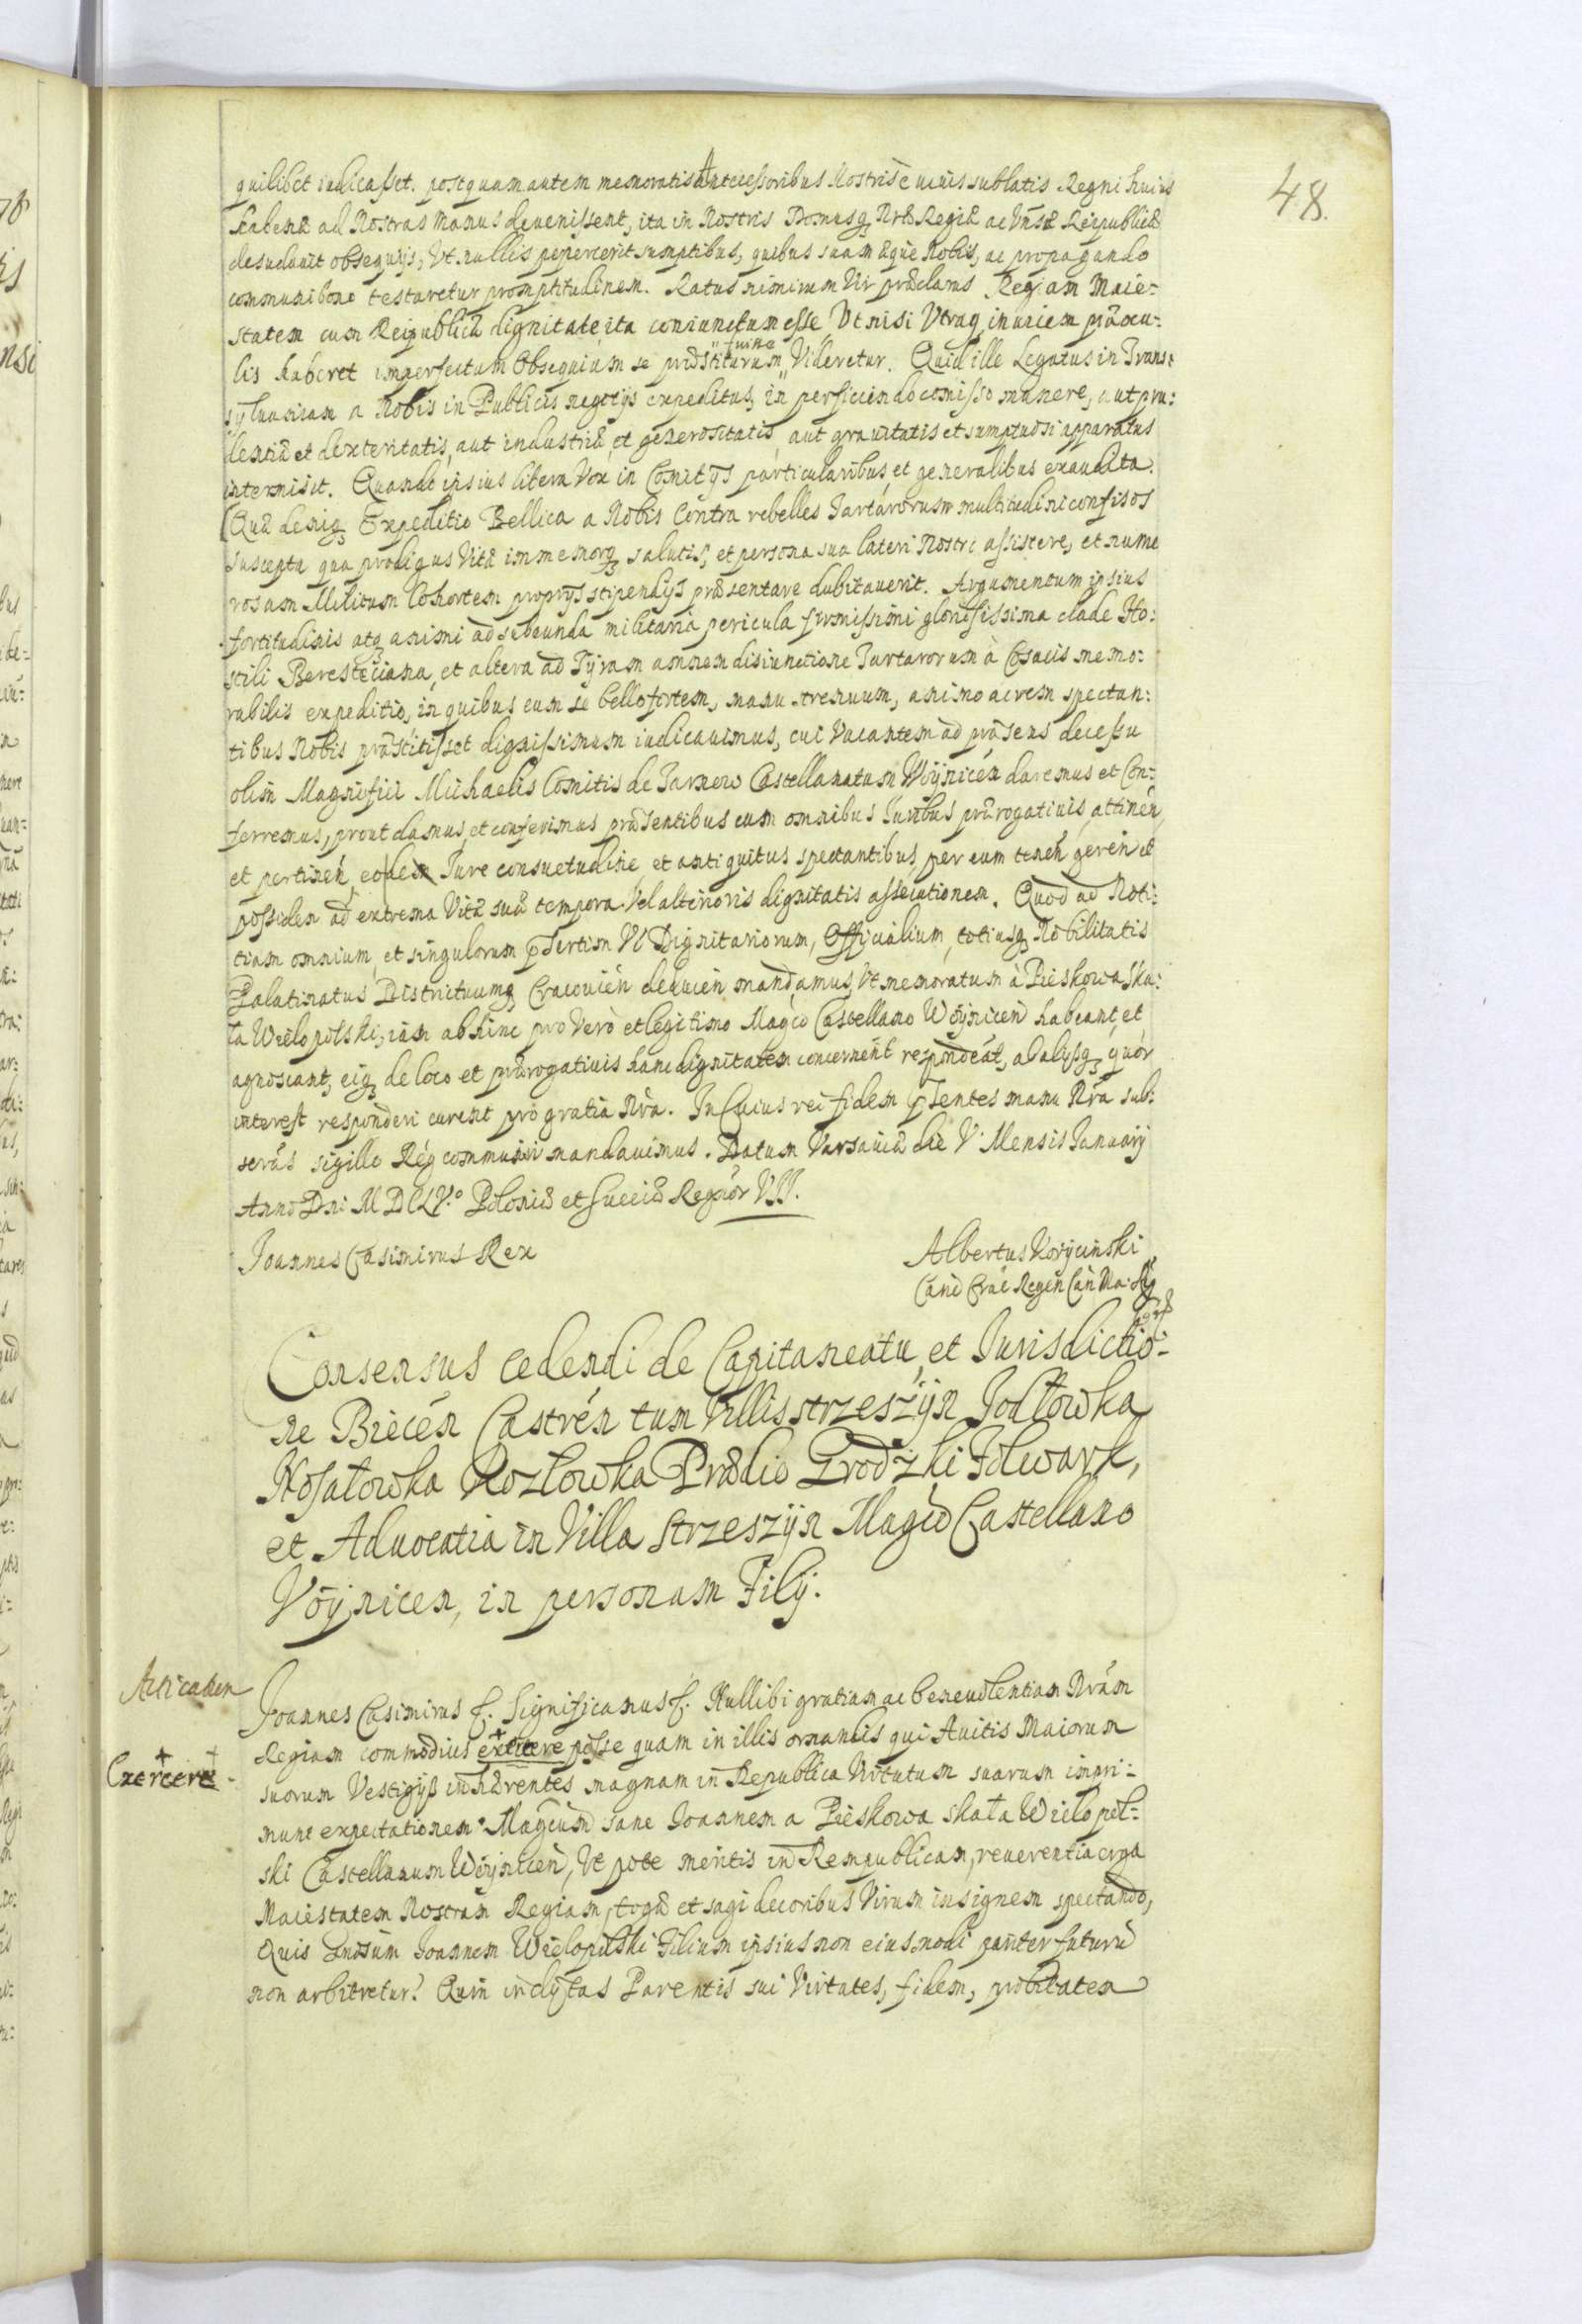 48.
quilibet iudicasset. postquam autem memoratis Antecessoribus Nostris è viuis sublatis Regni huius
habenæ ad Nostras manus deuenissent, ita in Nostris Domusq Nræ Regiæ ac Vnsæ Reipublicæ
desudauit obsequijs, Vt nullis pepercerit sumptibus, quibus suam æque Nobis, ac propagando
communi bono testaretur promptitudinem. Ratus nimirum Vir præclarus Regiam Maie=
statem cum Reipublicæ dignitate ita coniunctum esse, Vt nisi Vtramq in uicem præ ocu=
lis haberet imperfectum Obsequium se præstiturum Videretur. Quid ille Legatus in Trans=
syluaniam a Nobis in Publicis negotijs expeditus, in perficiendo comisso munere, aut pru=
dentiæ et dexteritatis, aut industriæ, et generositatis, aut grauitatis et sumptuosi apparatus
intermisit. Quando ipsius libera Vox in Comitijs particularibus, et generalibus exaudita.
Quæ deniq Expeditio Bellica a Nobis Contra rebelles Tartarorum multitudini confisos
suscepta qua prodigus Vitæ immemorq salutis, et persona sua lateri Nostri assistere, et nume
rosam Militum Cohortem proprijs stipendijs præsentare dubitauerit. Argumentum ipsius
fortitudinis atq animi ad subeunda militaria pericula firmissimi gloriosissima clade Ho=
stili Beresteciana, et altera ad Tyram amnem disiunctione Tartarorum à Cosacis memo=
rabilis expeditio, in quibus cum se bello fortem, manu strenuum, animo acrem spectan=
tibus Nobis præstitisset dignissimum iudicauimus, cui Vacantem ad præsens decessu
olim Magnifici Michaelis Comitis de Tarnow Castellanatum Woÿnicén daremus et Con=
ferremus, prout damus, et conferimus præsentibus cum omnibus Iuribus prærogatiuis, attinén,
et pertinén, eodem Iure consuetudine, et antiquitus spectantibus, per eum tenén gerén et
possiden ad extrema Vitæ suæ tempora Vel altioris dignitatis assecutionem. Quod ad Noti=
tiam omnium, et singulorum pSertim Vb Dignitariorum, Officialium, totiusq Nobilitatis
Palatinatus Districtuumq Cracouién deuuién mandamus, Vt memoratum à Pieskowa Ska=
ła Wielopolski, iam abhinc pro Vero et legitimo Magco Castellano Woÿnicen habeant, et
agnoscant, eiq de loco et prærogatiuis hanc dignitatem concernént respondeát, ab alijsq quór
interest responderi curent pro gratia Nra. In Cuius rei fidem pSentes manu Nra sub=
scrás sigillo Rég communiri mandauimus. Datum Varsauiæ die V Mensis Ianuarij
Anno Dni M DCLV.o Poloniæ et Sueciæ Regnór VII.
Joannes Casimirus Rex
Albertus Korÿcinski
Cánc Crác Regén Can Ma: Rg
Consensus cedendi de Capitaneatu, et Iurisdictio=
ne Biecén Castrén tum Villis Strzeszÿn Jodłowka
Nosałowka Kozłowka Prædio Grodzki Folwark,
et Aduocatia in Villa Strzeszÿn Magco Castellano
Voÿnicen, in personam Filij.
Joannes Casimirus f. Significamus f. Nullibi gratiam ac beneuolentiam Nrám
Regiam commodius exercere posse quam in illis ornandis qui Auitis Maiorum
Exercere
suorum Vestigijs inhærentes magnam in Republica Virtutum suarum impri=
munt expectationem. Magcum sane Joannem a Pieskowa Skała Wielopol=
ski Castellanum Woÿnicen, Vt pote meritis in Rempublicam, reuerentia erga
Maiestatem Nostram Regiam, togæ et sagi decoribus Virum insignem spectando,
Quis Gnosum Joannem Wielopolski Filium ipsius non eiusmodi pariter futurū
non arbitretur? Quin inclÿtas Parentis sui Virtutes, fidem, probitatem